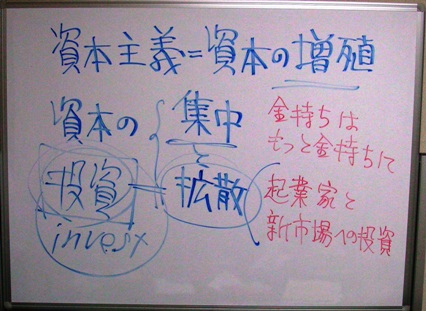 資本主義=資本の増殖
資本の
集中
と
拡散
投資
invest
金持ちは
もっと金持ちに
起業家と
新市場への投資